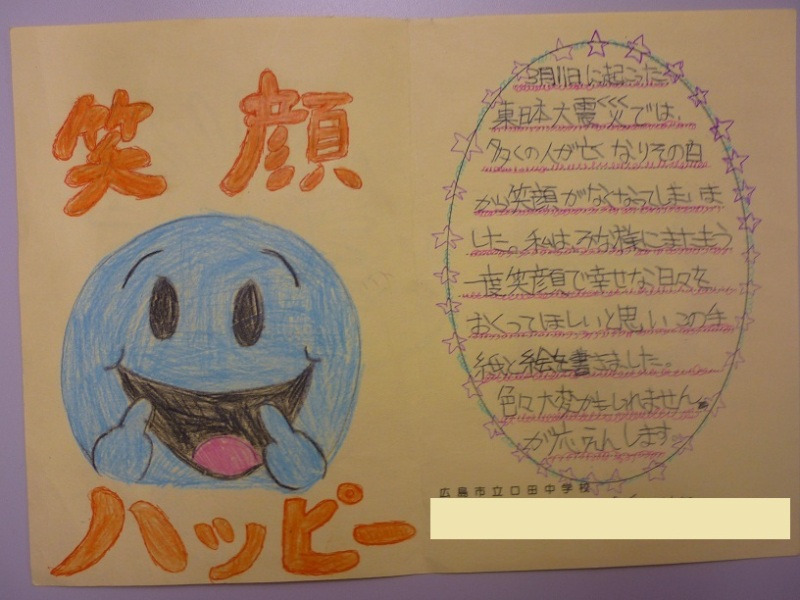 笑顔
ハッピー
3月11日に起こった
東日本大震災では、
多くの人が亡くなりその日
から笑顔がなくなってしまいま
した。私はみな様にまたもう
一度笑顔で幸せな日々を
おくってほしいと思いこの手
紙と絵を書きました。
色々大変かもしれません。
が応えんします
広島市立口田中学校